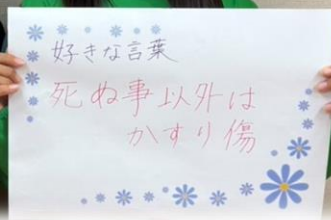 好きな言葉
死ぬ事以外は
かすり傷